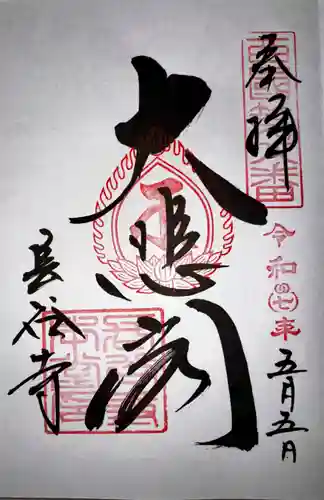 奉拝
令和七年
五月五日
大悲閣
長谷寺